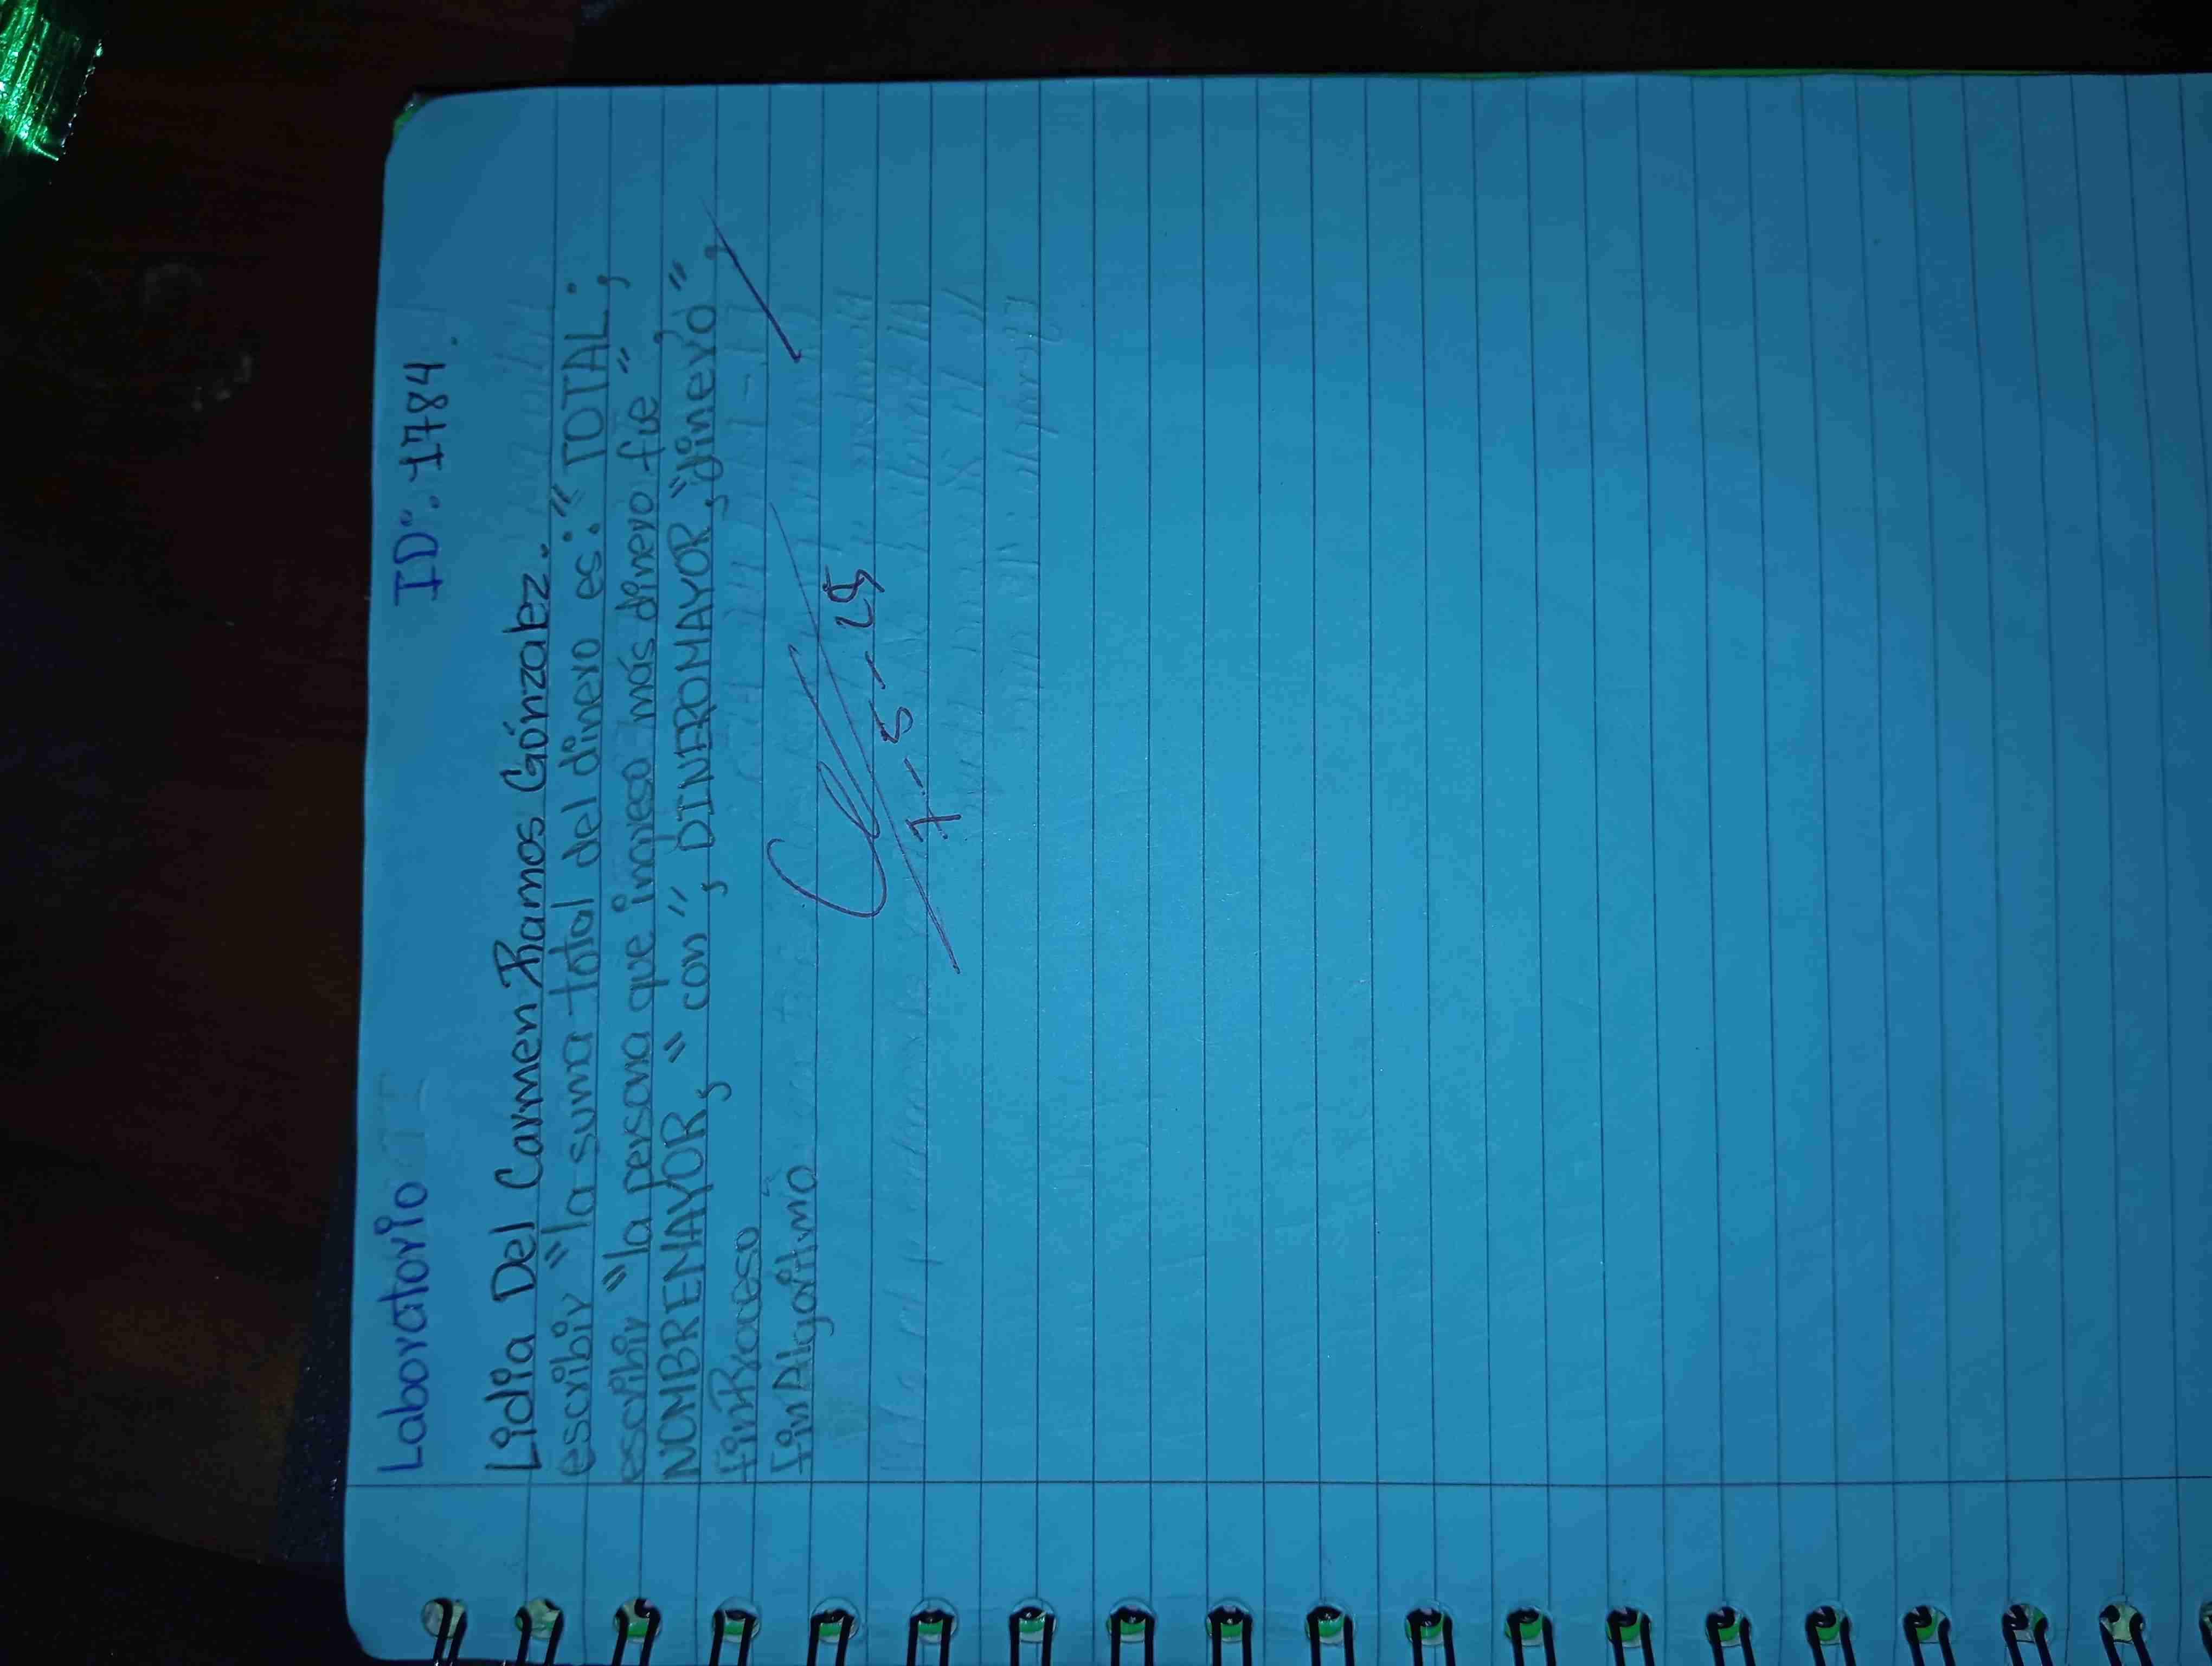 Laboratorio ID: 1784.
Lidia Del Carmen Ramos Gónzalez.
escribir "la suma total del dinero es:" TOTAL;
escribir "la persona que ingreso más dinero fue",
NOMBREMAYOR, "con", DINEROMAYOR, "dinero";
finProceso
finAlgoritmo
7-5-25